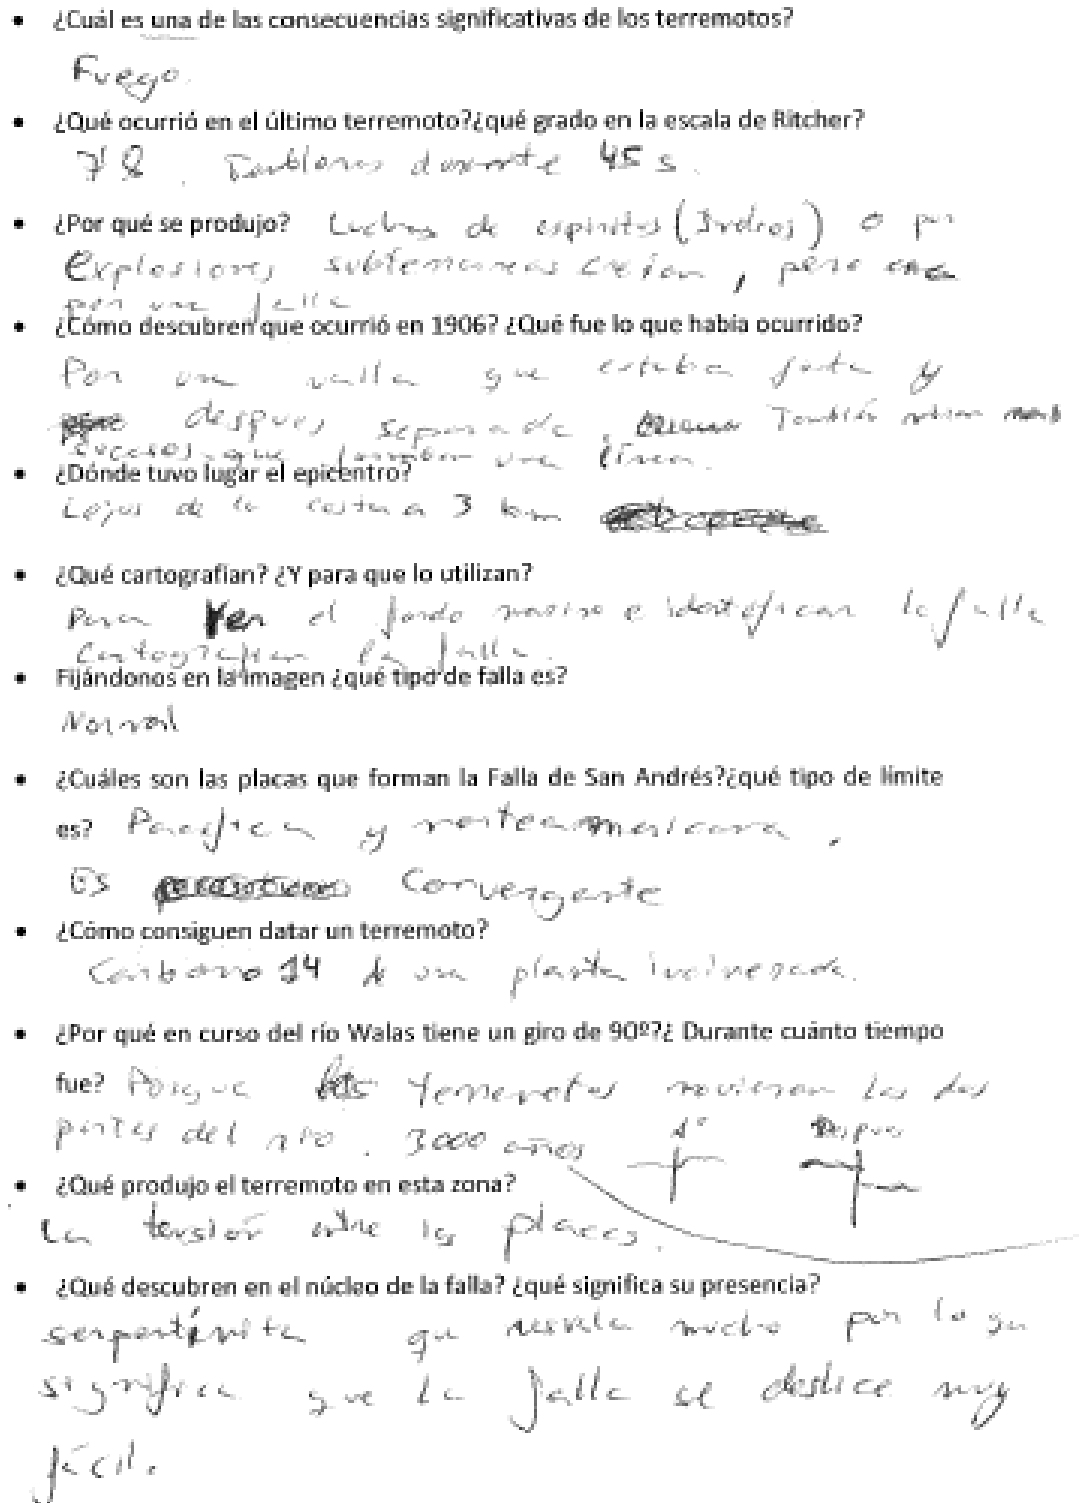 • ¿Cuál es una de las consecuencias significativas de los terremotos?
Fuego.
• ¿Qué ocurrió en el último terremoto?¿qué grado en la escala de Ritcher?
7'8. Temblores durante 45 s.
• ¿Por qué se produjo? Luchas de espiritus (Indios) o por
explosiones subterraneas creian, pero era
por una falla
• ¿Cómo descubren que ocurrió en 1906? ¿Qué fue lo que había ocurrido?
Por una valla que estaba junta y
despues separada, También
sucesos que formaban una línea.
• ¿Dónde tuvo lugar el epicentro?
Lejos de la costa a 3 km
• ¿Qué cartografían? ¿Y para que lo utilizan?
Para ver el fondo marino e identificar la falla
Cartografian la falla.
• Fijándonos en la imagen ¿qué tipo de falla es?
Normal
• ¿Cuáles son las placas que forman la Falla de San Andrés?¿qué tipo de límite
es? Pacifica y norteamericana,
Es Convergente
• ¿Cómo consiguen datar un terremoto?
Carbono 14 de una planta incinerada.
• ¿Por qué en curso del río Walas tiene un giro de 90º?¿ Durante cuánto tiempo
fue? Porque terremotos movieron las dos
partes del rio. 3000 años 1º Despues
• ¿Qué produjo el terremoto en esta zona?
La tensión entre las placas.
• ¿Qué descubren en el núcleo de la falla? ¿qué significa su presencia?
serpentinita que resvala mucho por lo que
significa que la falla se deslice muy
fácil.